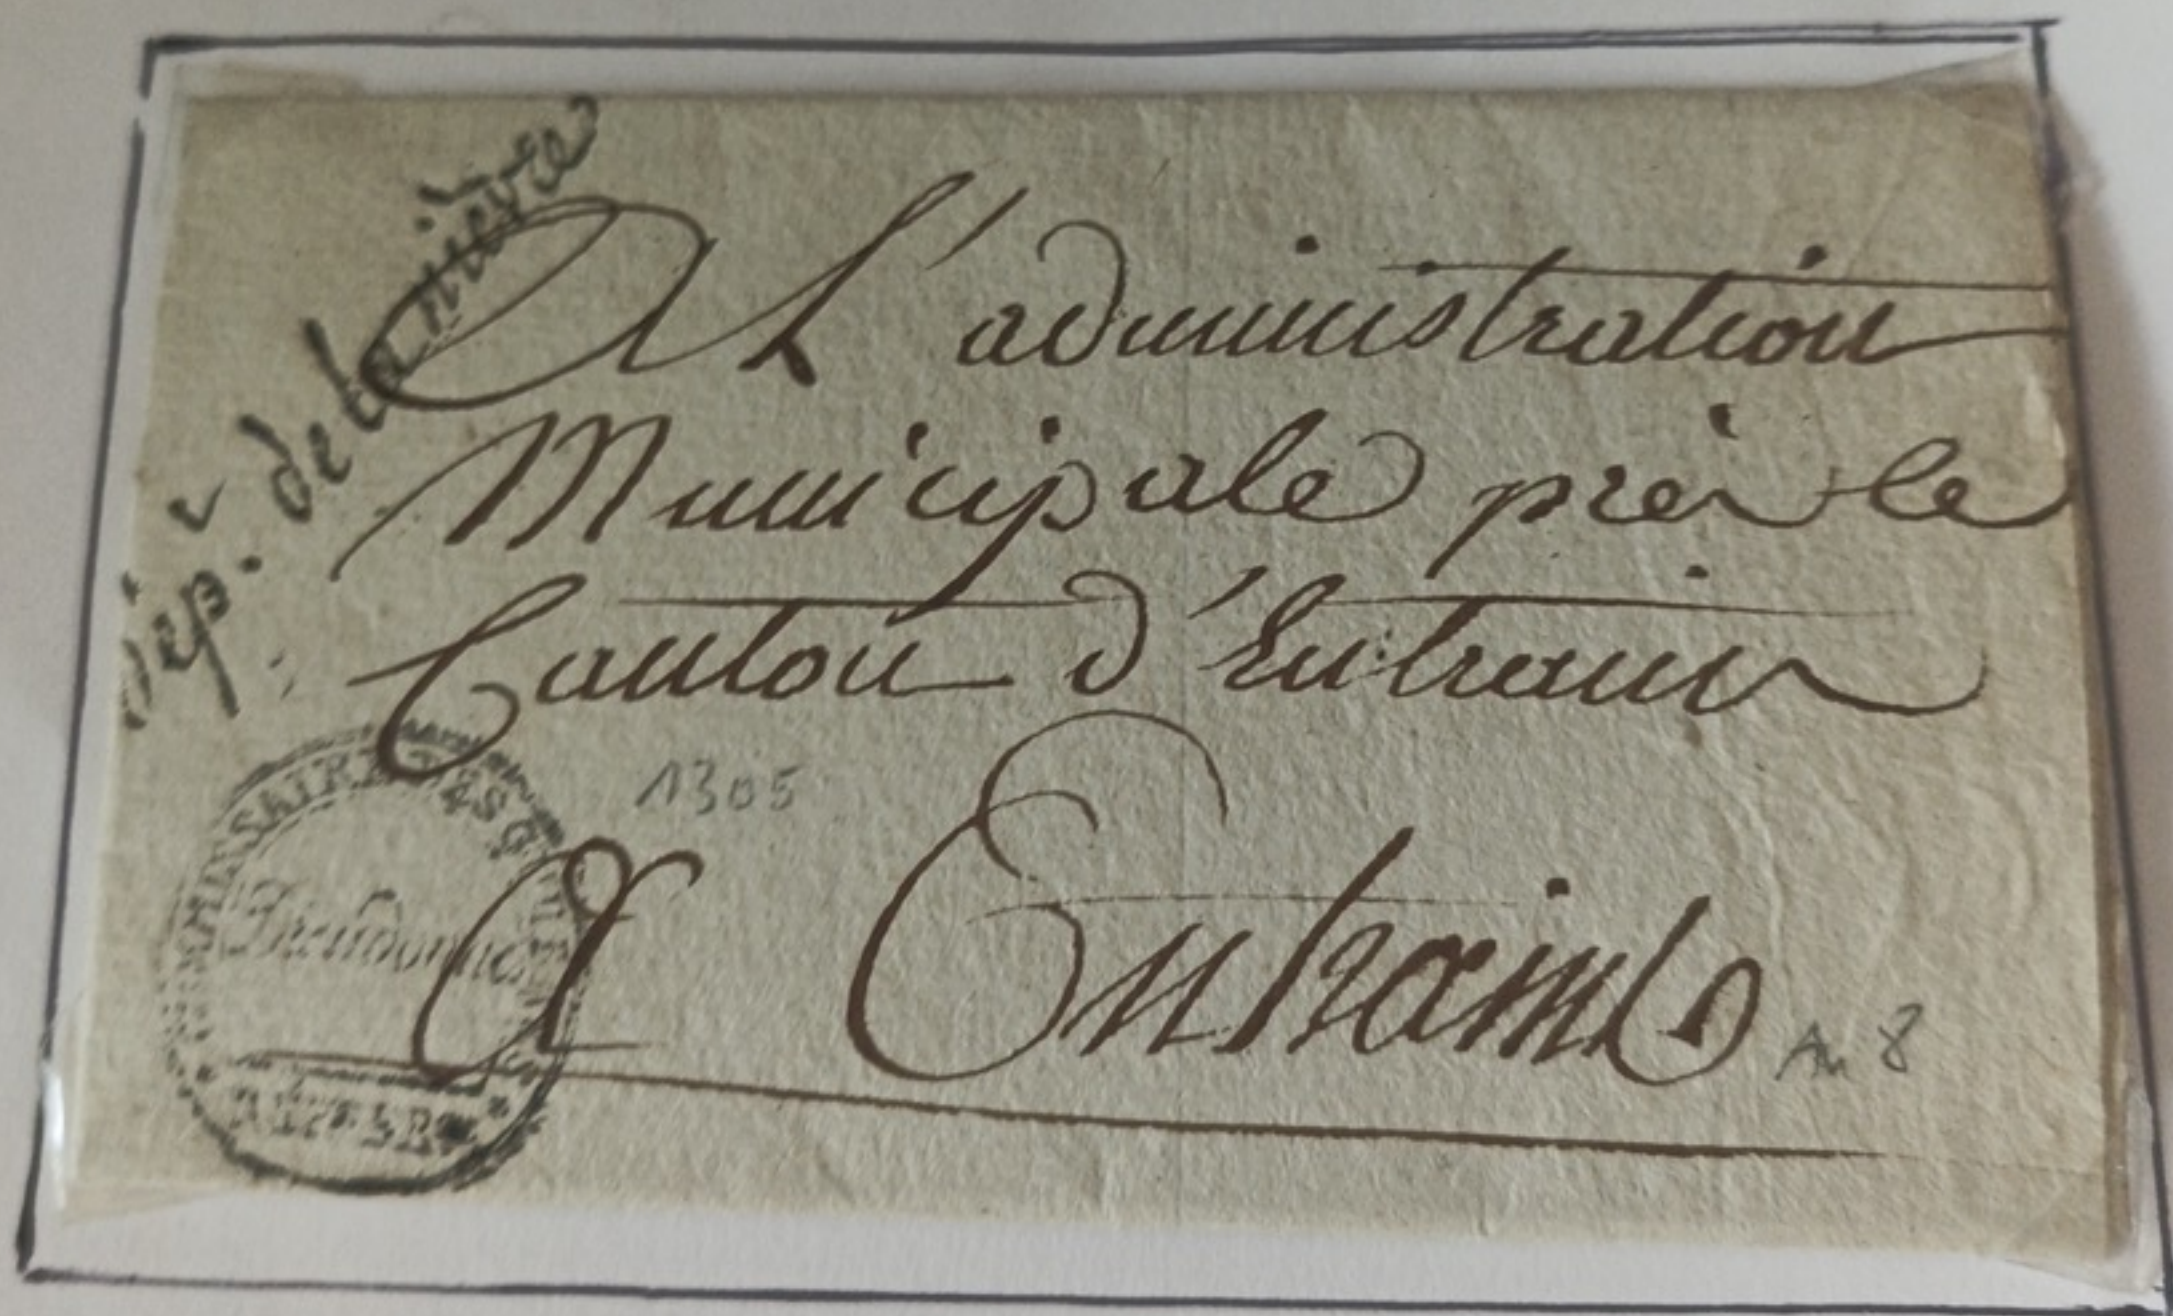 Dép. de la nièvre
A L'administration
Municipale près le
Canton d'Entrains
1305
A Entrains
An 8
COMMISSAIRE DES GUERRES